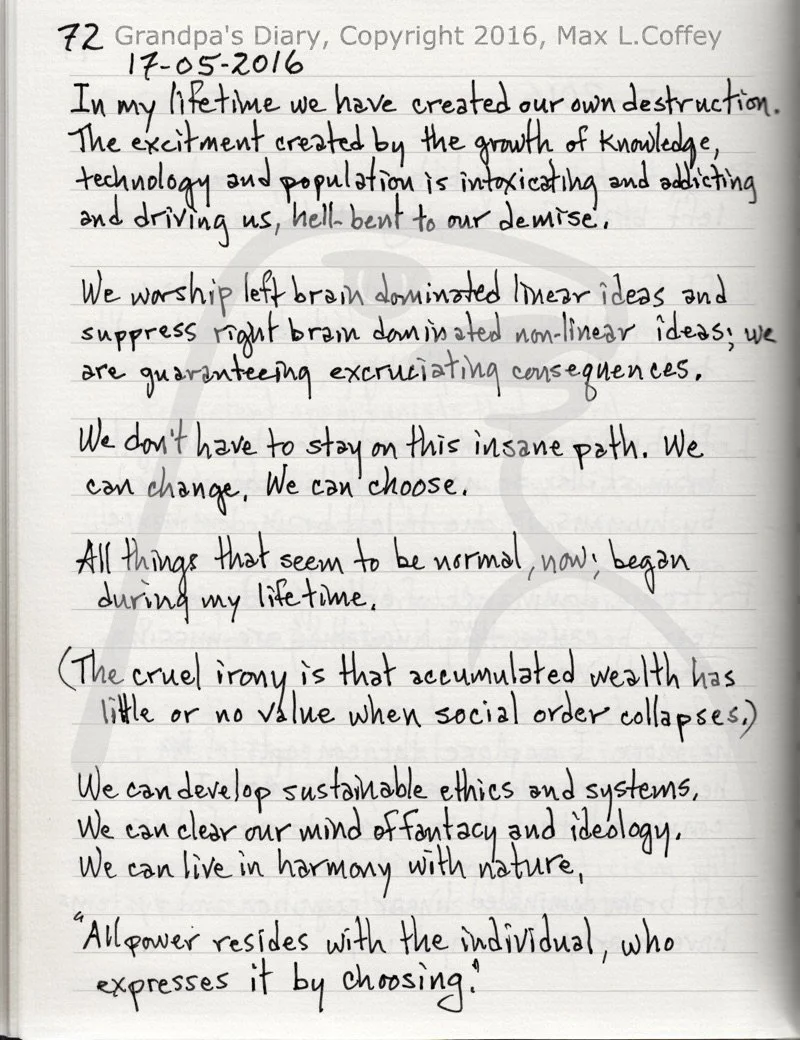 72 Grandpa's Diary, Copyright 2016, Max L.Coffey
17-05-2016
In my lifetime we have created our own destruction.
The excitment created by the growth of knowledge,
technology and population is intoxicating and addicting
and driving us, hell-bent to our demise.
We worship left brain dominated linear ideas and
suppress right brain dominated non-linear ideas; we
are guaranteeing excruciating consequences.
We don't have to stay on this insane path. We
can change. We can choose.
All things that seem to be normal, now; began
during my lifetime.
(The cruel irony is that accumulated wealth has
little or no value when social order collapses.)
We can develop sustainable ethics and systems.
We can clear our mind of fantacy and ideology.
We can live in harmony with nature.
"All power resides with the individual, who
expresses it by choosing."